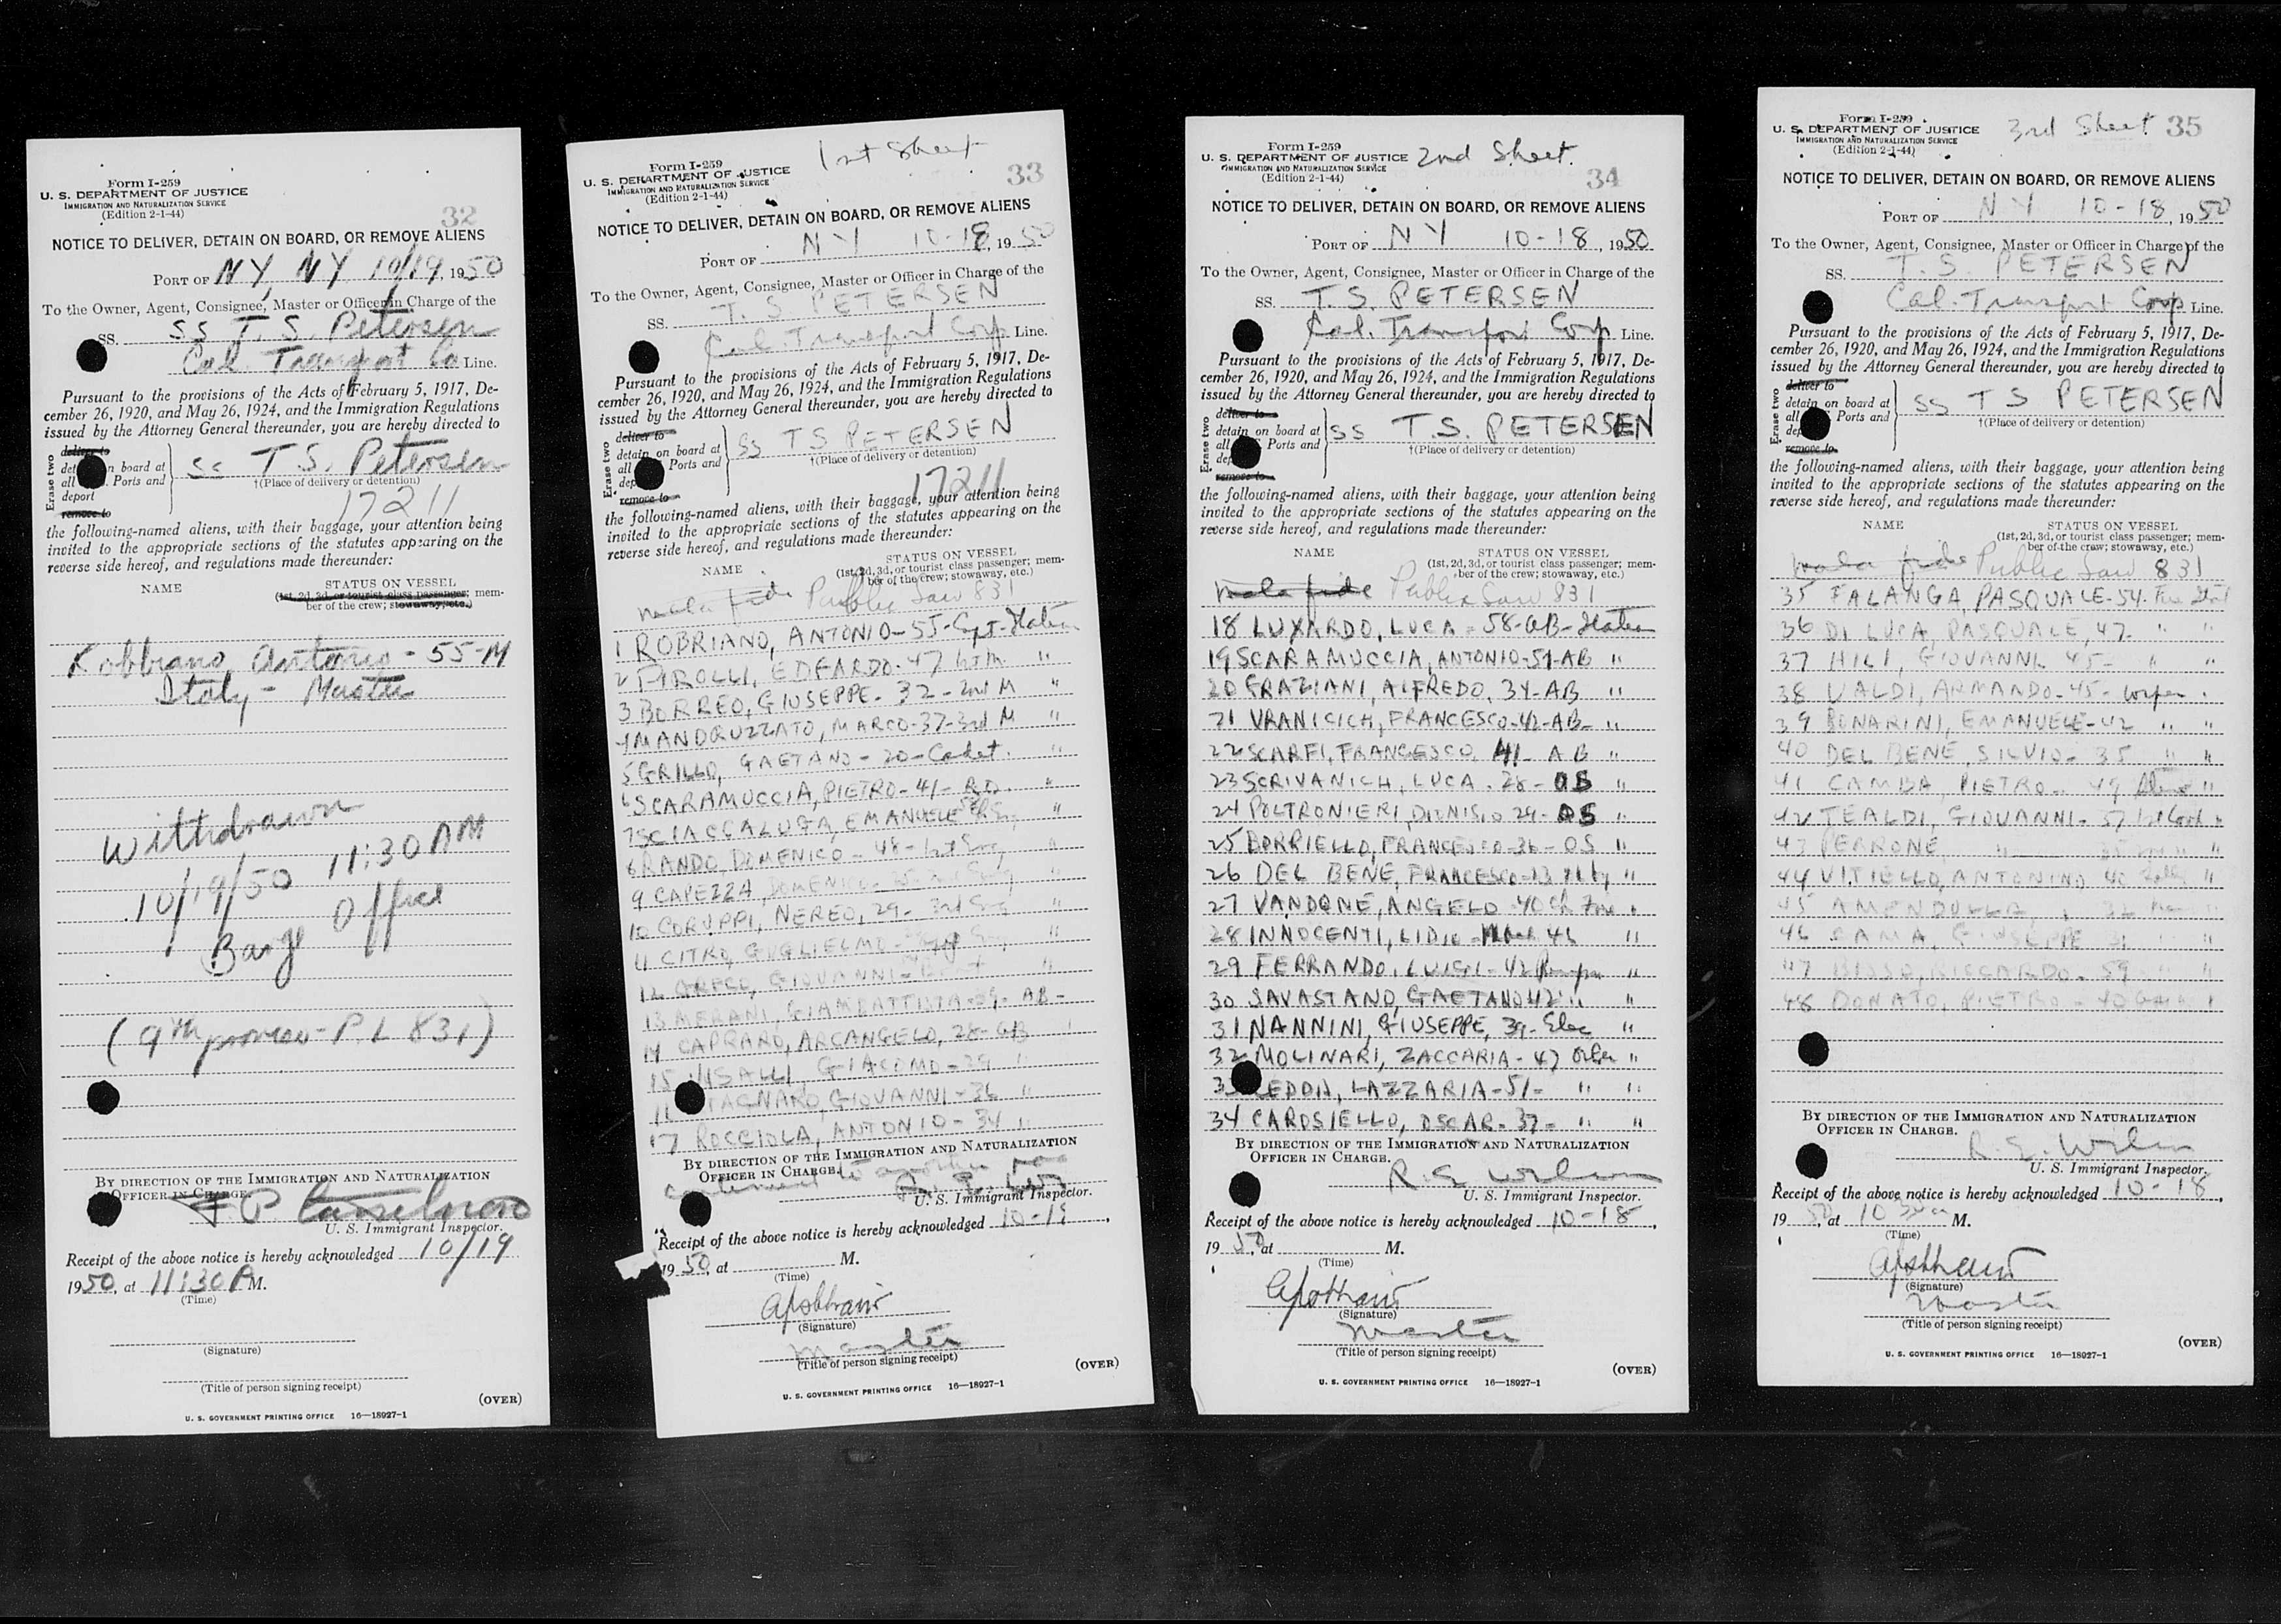 Form I-259
U. S. DEPARTMENT OF JUSTICE
IMMIGRATION AND NATURALIZATION SERVICE
(Edition 2-1-44)
32
NOTICE TO DELIVER, DETAIN ON BOARD, OR REMOVE ALIENS
PORT OF NY, NY 10/19, 1950
To the Owner, Agent, Consignee, Master or Officer in Charge of the
SS. SS T. S. Petersen
Cal. Transport Co Line.
Pursuant to the provisions of the Acts of February 5, 1917, De-
cember 26, 1920, and May 26, 1924, and the Immigration Regulations
issued by the Attorney General thereunder, you are hereby directed to
Erase two
deliver to
det n board at
all Ports and
deport
remove to
SS T. S. Petersen
†(Place of delivery or detention)
17211
the following-named aliens, with their baggage, your attention being
invited to the appropriate sections of the statutes appearing on the
reverse side hereof, and regulations made thereunder:
NAME STATUS ON VESSEL
(1st, 2d, 3d, or tourist class passenger; mem-
ber of the crew; stowaway, etc.)
Robbiano, Antonio - 55-M
Italy - Master
Withdrawn
10/19/50 11:30 AM
Barge Office
(9th proviso - P. L 831)
BY DIRECTION OF THE IMMIGRATION AND NATURALIZATION
OFFICER IN CHARGE.
U. S. Immigrant Inspector.
Receipt of the above notice is hereby acknowledged 10/19
1950, at 11:30 A M.
(Time)
(Signature)
(Title of person signing receipt)
(OVER)
U. S. GOVERNMENT PRINTING OFFICE 16—18927-1
Form I-259
1st Sheet
U. S. DEPARTMENT OF JUSTICE
IMMIGRATION AND NATURALIZATION SERVICE
(Edition 2-1-44)
33
NOTICE TO DELIVER, DETAIN ON BOARD, OR REMOVE ALIENS
PORT OF NY 10-18, 1950
To the Owner, Agent, Consignee, Master or Officer in Charge of the
SS. T. S PETERSEN
Cal. Transport Corp Line.
Pursuant to the provisions of the Acts of February 5, 1917, De-
cember 26, 1920, and May 26, 1924, and the Immigration Regulations
issued by the Attorney General thereunder, you are hereby directed to
Erase two
deliver to
detain on board at
all Ports and
dep
remove to
SS TS PETERSEN
†(Place of delivery or detention)
17211
the following-named aliens, with their baggage, your attention being
invited to the appropriate sections of the statutes appearing on the
reverse side hereof, and regulations made thereunder:
NAME STATUS ON VESSEL
(1st, 2d, 3d, or tourist class passenger; mem-
ber of the crew; stowaway, etc.)
mala fide Public Law 831
1 ROBBIANO, ANTONIO - 55 - Cpt - Italian
2 PIROLLI, EDEARDO - 47 1st M "
3 BORREO, GIUSEPPE - 32 - 2nd M "
4 MANDRUZZATO, MARCO - 37 - 3rd M "
5 GRILLO, GAETANO - 20 - Cadet. "
6 SCARAMUCCIA, PIETRO - 41 - RO. "
7 SCIACCALUGA, EMANUELE "
8 RANDO, DOMENICO - 48 - 1st Eng "
9 CAPEZZA, DOMENICO "
10 CORUPPI, NEREO, 29 - 3rd Eng "
11 CITRO, GUGLIELMO "
12 GRECO, GIOVANNI "
13 MERANI, GIAMBATTISTA - AB -
14 CAPRARO, ARCANGELO, 28 - AB "
15 GIACOMO - 39 "
16 TAGNARO, GIOVANNI - 36 "
17 ROCCIOLA, ANTONIO - 34 "
BY DIRECTION OF THE IMMIGRATION AND NATURALIZATION
OFFICER IN CHARGE.
U. S. Immigrant Inspector.
Receipt of the above notice is hereby acknowledged 10-18,
1950, at M.
(Time)
(Signature)
Master
(Title of person signing receipt)
(OVER)
U. S. GOVERNMENT PRINTING OFFICE 16—18927-1
Form I-259
U. S. DEPARTMENT OF JUSTICE 2nd Sheet.
IMMIGRATION AND NATURALIZATION SERVICE
(Edition 2-1-44)
34
NOTICE TO DELIVER, DETAIN ON BOARD, OR REMOVE ALIENS
PORT OF NY 10-18, 1950
To the Owner, Agent, Consignee, Master or Officer in Charge of the
SS. T. S. PETERSEN
Cal. Transport Corp Line.
Pursuant to the provisions of the Acts of February 5, 1917, De-
cember 26, 1920, and May 26, 1924, and the Immigration Regulations
issued by the Attorney General thereunder, you are hereby directed to
Erase two
deliver to
detain on board at
all Ports and
dep
remove to
SS T.S. PETERSEN
†(Place of delivery or detention)
the following-named aliens, with their baggage, your attention being
invited to the appropriate sections of the statutes appearing on the
reverse side hereof, and regulations made thereunder:
NAME STATUS ON VESSEL
(1st, 2d, 3d, or tourist class passenger; mem-
ber of the crew; stowaway, etc.)
mala fide Public Law 831
18 LUXARDO, LUCA - 58 - AB - Italian
19 SCARAMUCCIA, ANTONIO - 51 - AB "
20 GRAZIANI, ALFREDO, 34 - AB "
21 VRANICICH, FRANCESCO - 42 - AB - "
22 SCARFI, FRANCESCO, 41 - AB "
23 SCRIVANICH, LUCA - 28 - OS "
24 POLTRONIERI, DIONISIO 29 - OS "
25 BORRIELLO, FRANCESCO - 36 - OS "
26 DEL BENE, FRANCESCO "
27 VANDONE, ANGELO 40 "
28 INNOCENTI, LIDIO 46 "
29 FERRANDO, LUIGI - 42 Pumpm "
30 SAVASTANO, GAETANO 42 " "
31 NANNINI, GIUSEPPE, 39 - Elec "
32 MOLINARI, ZACCARIA - 47 Oiler "
33 EDDA, LAZZARIA - 51 - " "
34 CAROSIELLO, OSCAR - 37 - " "
BY DIRECTION OF THE IMMIGRATION AND NATURALIZATION
OFFICER IN CHARGE.
R. E. Wilson
U. S. Immigrant Inspector.
Receipt of the above notice is hereby acknowledged 10-18,
1950, at M.
(Time)
(Signature)
Master
(Title of person signing receipt)
(OVER)
U. S. GOVERNMENT PRINTING OFFICE 16—18927-1
Form I-259
U. S. DEPARTMENT OF JUSTICE 3rd Sheet 35
IMMIGRATION AND NATURALIZATION SERVICE
(Edition 2-1-44)
NOTICE TO DELIVER, DETAIN ON BOARD, OR REMOVE ALIENS
PORT OF NY 10-18, 1950
To the Owner, Agent, Consignee, Master or Officer in Charge of the
SS. T. S. PETERSEN
Cal. Transport Corp Line.
Pursuant to the provisions of the Acts of February 5, 1917, De-
cember 26, 1920, and May 26, 1924, and the Immigration Regulations
issued by the Attorney General thereunder, you are hereby directed to
Erase two
deliver to
detain on board at
all Ports and
dep
remove to
SS T S PETERSEN
†(Place of delivery or detention)
the following-named aliens, with their baggage, your attention being
invited to the appropriate sections of the statutes appearing on the
reverse side hereof, and regulations made thereunder:
NAME STATUS ON VESSEL
(1st, 2d, 3d, or tourist class passenger; mem-
ber of the crew; stowaway, etc.)
mala fide Public Law 831
35 FALANGA, PASQUALE - 54 -
36 DI LUCA, PASQUALE, 47 - " "
37 HILI, GIOVANNI 45 - " "
38 VALDI, ARMANDO - 45 - Wiper "
39 BONARINI, EMANUELE - 42 " "
40 DEL BENE, SILVIO - 35 " "
41 CAMBA, PIETRO - 49 "
42 TEALDI, GIOVANNI - 57 1st Cook "
43 PERRONE, " "
44 VITIELLO, ANTONINO 40 "
45 AMENDOLLA, 32
46 CAMA, GIUSEPPE 31
47 BISSO, RICCARDO - 59
48 DONATO, PIETRO - 40
BY DIRECTION OF THE IMMIGRATION AND NATURALIZATION
OFFICER IN CHARGE.
R. E. Wilson
U. S. Immigrant Inspector.
Receipt of the above notice is hereby acknowledged 10-18,
1950 at 10 M.
(Time)
(Signature)
Master
(Title of person signing receipt)
(OVER)
U. S. GOVERNMENT PRINTING OFFICE 16—18927-1